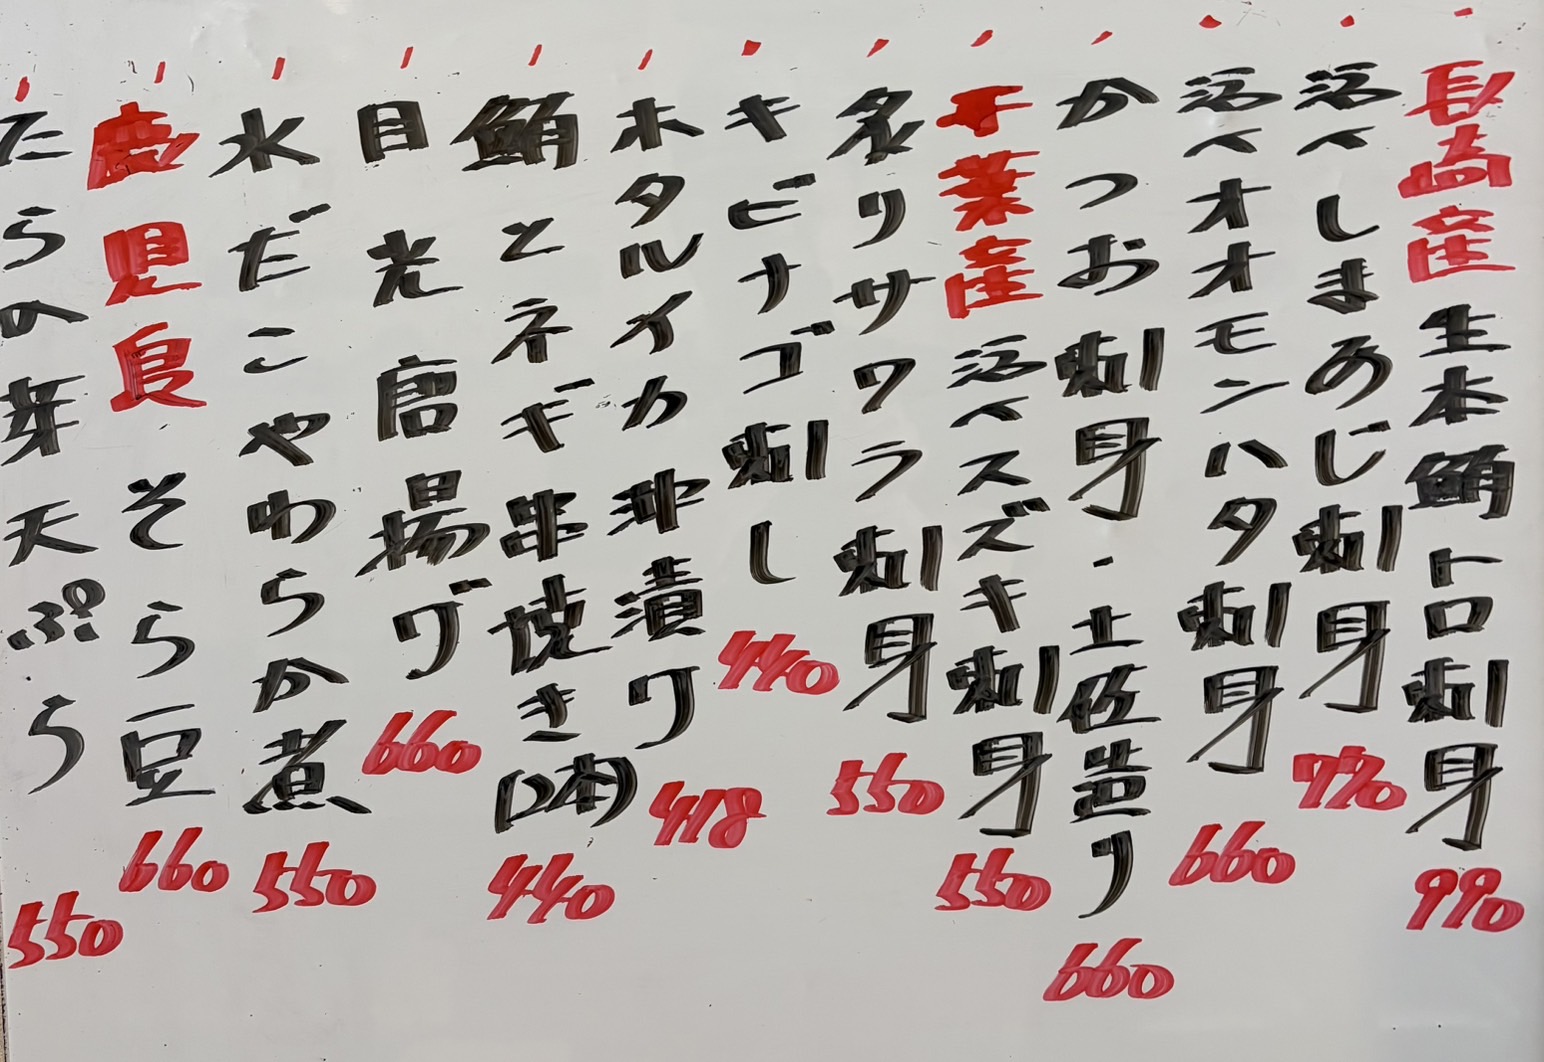 長崎産生本鮪トロ刺身 990
活〆しまあじ刺身 770
活〆オオモンハタ刺身 660
かつお刺身・土佐造り 660
千葉産活〆スズキ刺身 550
炙りサワラ刺身 550
キビナゴ刺し 440
ホタルイカ沖漬ケ 418
鮪とネギ串焼き(2本) 440
目光唐揚ゲ 660
水だこやわらか煮 550
鹿児島そら豆 660
たらの芽天ぷら 550